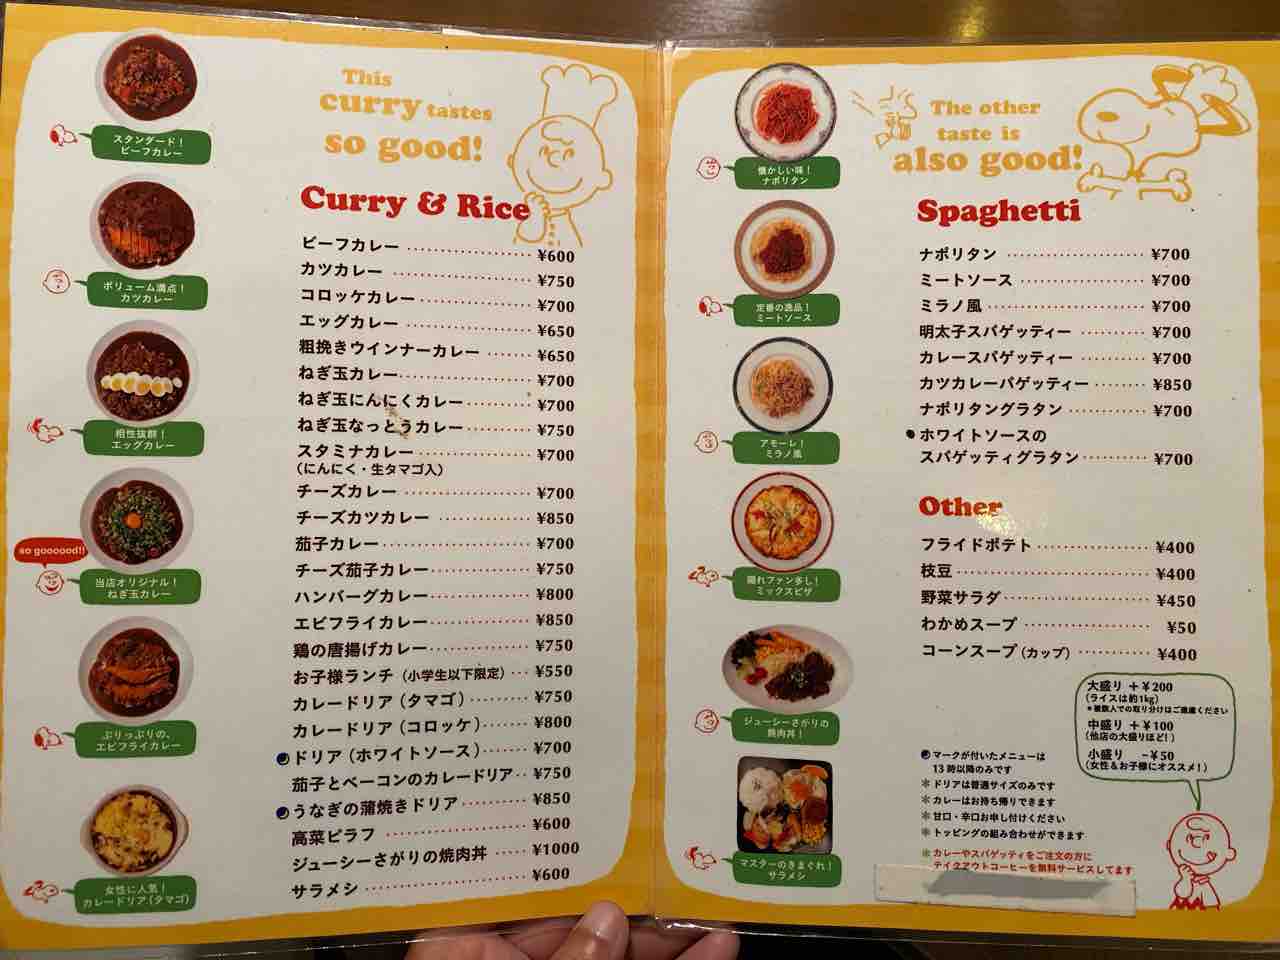 スタンダード!
ビーフカレー
ボリューム満点!
カツカレー
相性抜群!
エッグカレー
so goooood!!
当店オリジナル!
ねぎ玉カレー
ぷりっぷりの、
エビフライカレー
女性に人気!
カレードリア(タマゴ)
This
curry tastes
so good!
Curry & Rice
ビーフカレー ¥600
カツカレー ¥750
コロッケカレー ¥700
エッグカレー ¥650
粗挽きウインナーカレー ¥650
ねぎ玉カレー ¥700
ねぎ玉にんにくカレー ¥700
ねぎ玉なっとうカレー ¥750
スタミナカレー ¥700
(にんにく・生タマゴ入)
チーズカレー ¥700
チーズカツカレー ¥850
茄子カレー ¥700
チーズ茄子カレー ¥750
ハンバーグカレー ¥800
エビフライカレー ¥850
鶏の唐揚げカレー ¥750
お子様ランチ(小学生以下限定) ¥550
カレードリア(タマゴ) ¥750
カレードリア(コロッケ) ¥800
ドリア(ホワイトソース) ¥700
茄子とベーコンのカレードリア ¥750
うなぎの蒲焼きドリア ¥850
高菜ピラフ ¥600
ジューシーさがりの焼肉丼 ¥1000
サラメシ ¥600
懐かしい味!
ナポリタン
定番の逸品!
ミートソース
アモーレ!
ミラノ風
隠れファン多し!
ミックスピザ
ジューシーさがりの
焼肉丼!
マスターのきまぐれ!
サラメシ
The other
taste is
also good!
Spaghetti
ナポリタン ¥700
ミートソース ¥700
ミラノ風 ¥700
明太子スパゲッティー ¥700
カレースパゲッティー ¥700
カツカレーパゲッティー ¥850
ナポリタングラタン ¥700
ホワイトソースの
スパゲッティグラタン ¥700
Other
フライドポテト ¥400
枝豆 ¥400
野菜サラダ ¥450
わかめスープ ¥50
コーンスープ(カップ) ¥400
大盛り +¥200
(ライスは約1kg)
*複数人での取り分けはご遠慮ください
中盛り +¥100
(他店の大盛りほど!)
小盛り -¥50
(女性&お子様にオススメ!)
マークが付いたメニューは
13時以降のみです
*ドリアは普通サイズのみです
*カレーはお持ち帰りできます
*甘口・辛口お申し付けください
*トッピングの組み合わせができます
*カレーやスパゲッティをご注文の方に
テイクアウトコーヒーを無料サービスしてます